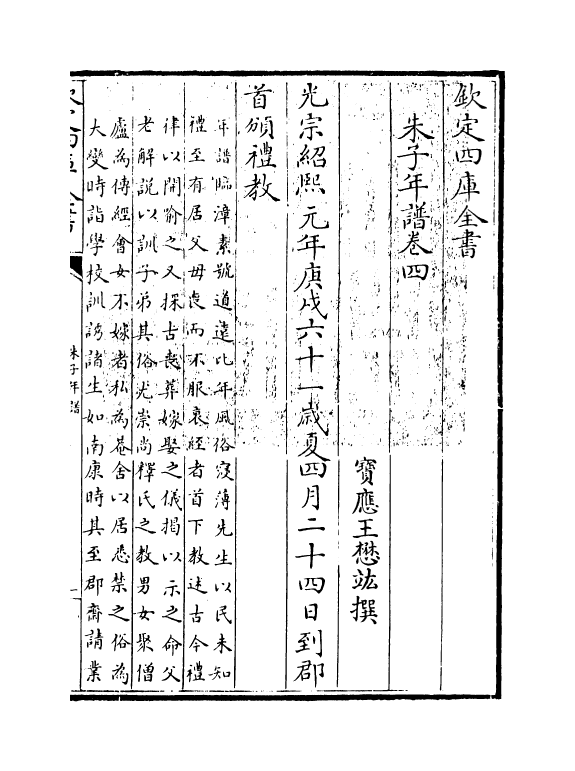 欽定四庫全書
朱子年譜卷四
寶應王懋竑撰
光宗紹熙元年庚戌六十一歲夏四月二十四日到郡
首頒禮教
年譜臨漳素號道遠比年風俗寖薄先生以民未知
禮至有居父母喪而不服衰絰者首下教述古今禮
律以開喻之又採古喪葬嫁娶之儀揭以示之命父
老解說以訓子弟其俗尤崇尚釋氏之教男女聚僧
廬為傳經會女不嫁者私為菴舍以居悉禁之俗為
大變時詣學校訓誘諸生如南康時其至郡齋請業
欽定四庫全書
朱子年譜
一